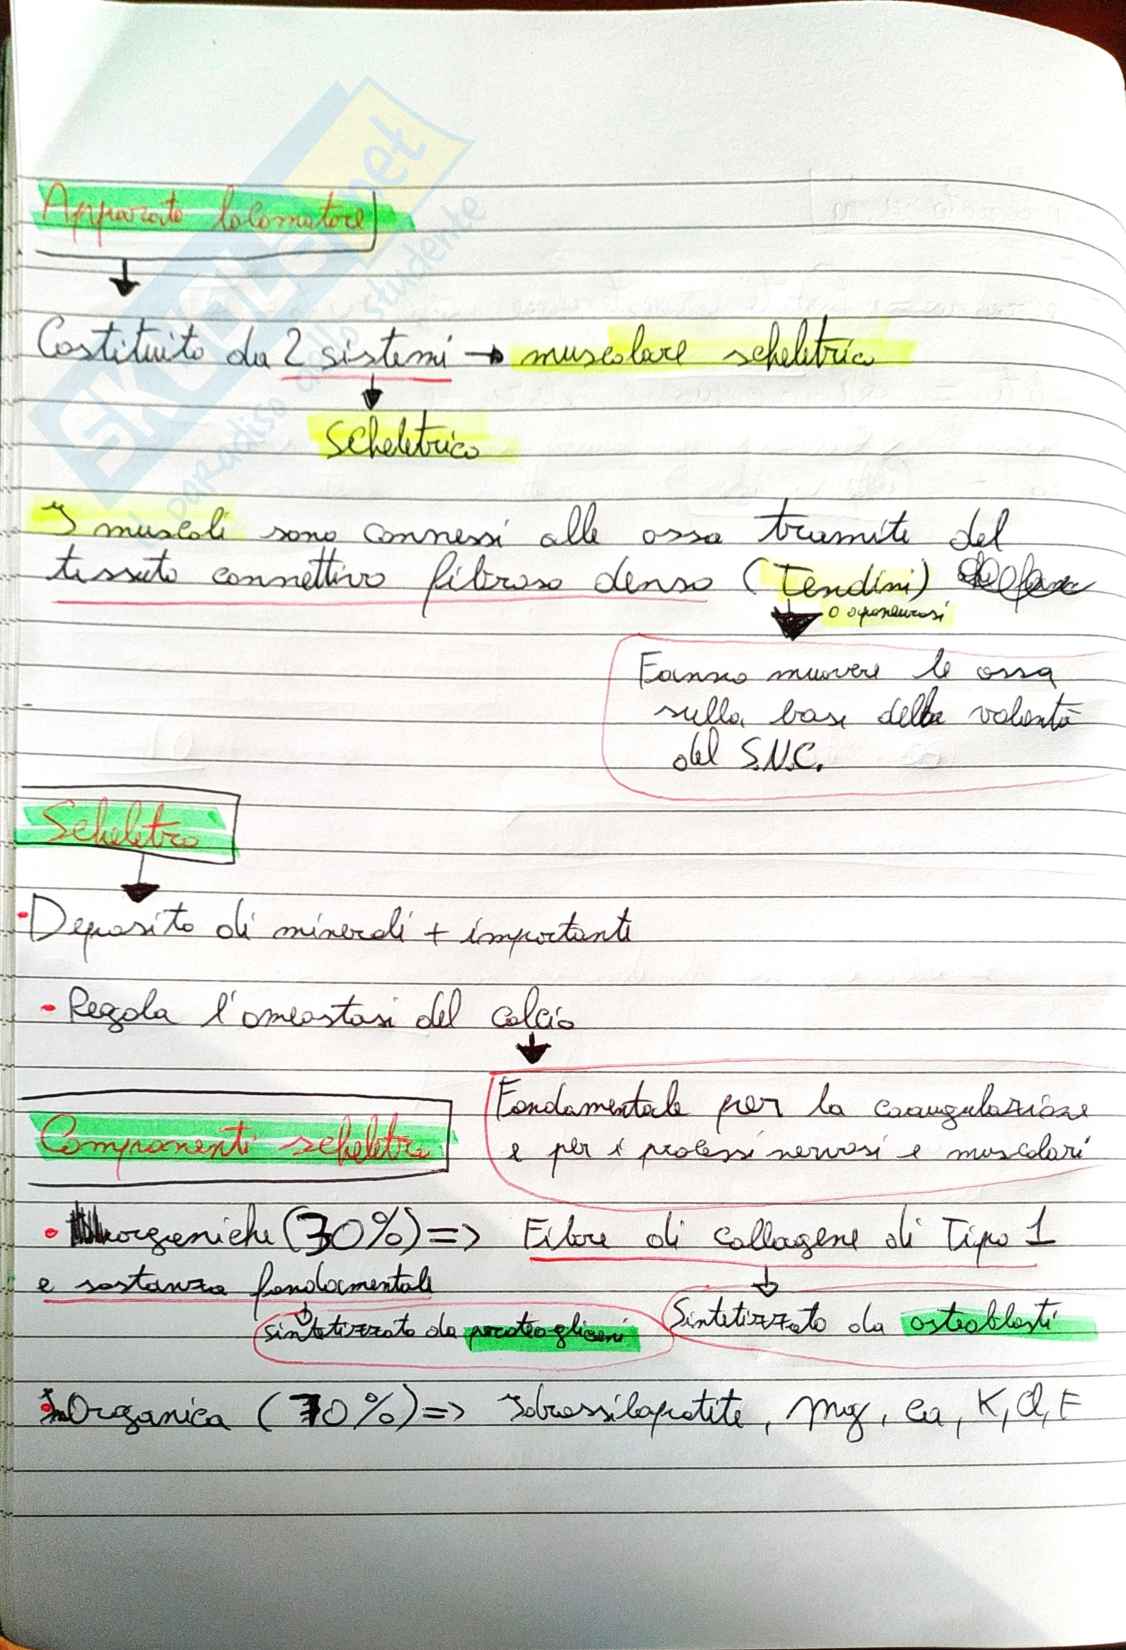 Apparato locomotore
Costituito da 2 sistemi → muscolare scheletrico
Scheletrico
I muscoli sono connessi alle ossa tramite del
tessuto connettivo fibroso denso (Tendini)
o aponeurosi
Fanno muovere le ossa
sulla base della volontà
del S.N.C.
Scheletro
- Deposito di minerali + importante
- Regola l'omeostasi del calcio
Fondamentale per la coaugulazione
e per i processi nervosi e muscolari
Componenti scheletro
• organiche (30%) => Fibre di collagene di Tipo 1
e sostanza fondamentale
sintetizzato da proteoglicani
Sintetizzato da osteoblasti
• InOrganica (70%) => Idrossilapatite, Mg, Ca, K, Cl, F
SKUOLA.net
il paradiso dello studente